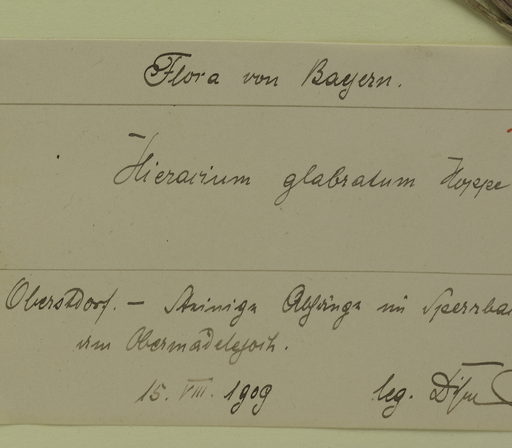 Flora von Bayern.
Hieracium glabratum Hoppe
Oberstdorf. — Steinige Abhänge im Sperrba
am Obermädelejoch.
15. VIII. 1909 leg.